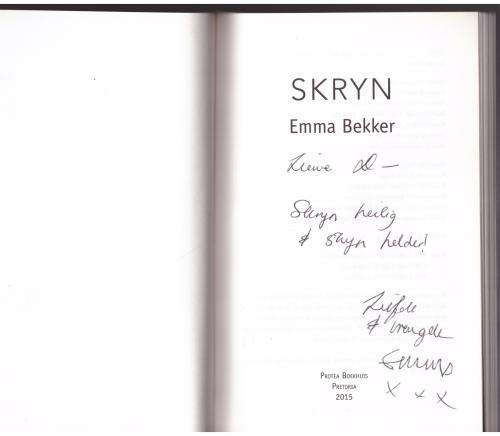 SKRYN
Emma Bekker
Liewe D —
Skryn heilig
& skyn helder!
Liefde
& vreugde
Emma
x x x
PROTEA BOEKHUIS
PRETORIA
2015